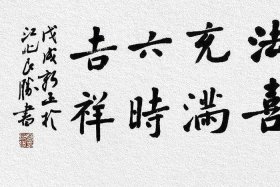 法喜
充滿
六時
吉祥
戊戌新正於
江北民勝書